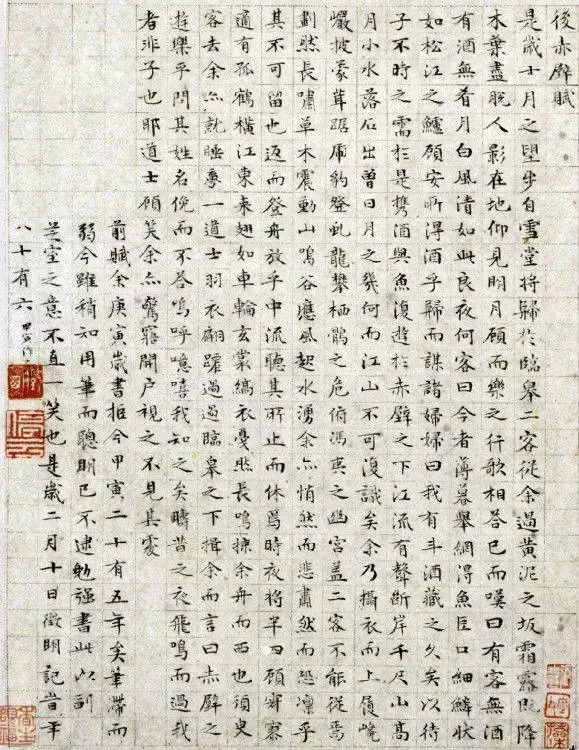 後赤壁賦
是歲十月之望步自雪堂將歸於臨皋二客從余過黃泥之坂霜露既降
木葉盡脫人影在地仰見明月顧而樂之行歌相答已而嘆曰有客無酒
有酒無肴月白風清如此良夜何客曰今者薄暮舉網得魚巨口細鱗狀
如松江之鱸顧安所得酒乎歸而謀諸婦婦曰我有斗酒藏之久矣以待
子不時之需於是攜酒與魚復遊於赤壁之下江流有聲斷岸千尺山高
月小水落石出曾日月之幾何而江山不可復識矣余乃攝衣而上履巉
巖披蒙茸踞虎豹登虬龍攀栖鶻之危俯馮夷之幽宮蓋二客不能從焉
劃然長嘯草木震動山鳴谷應風起水湧余亦悄然而悲肅然而恐凜乎
其不可留也返而登舟放乎中流聽其所止而休焉時夜將半四顧寂寥
適有孤鶴橫江東來翅如車輪玄裳縞衣戛然長鳴掠余舟而西也須臾
客去余亦就睡夢一道士羽衣翩躚過過臨皋之下揖余而言曰赤壁之
遊樂乎問其姓名俛而不答嗚呼噫嘻我知之矣疇昔之夜飛鳴而過我
者非子也耶道士顧笑余亦驚寤開户視之不見其處
前賦余庚寅歲書拒今甲寅二十有五年矣筆滯而
弱今雖稍知用筆而聰明已不逮勉强書此以副
芝室之意不直一笑也是歲二月十日徵明記旹年
八十有六